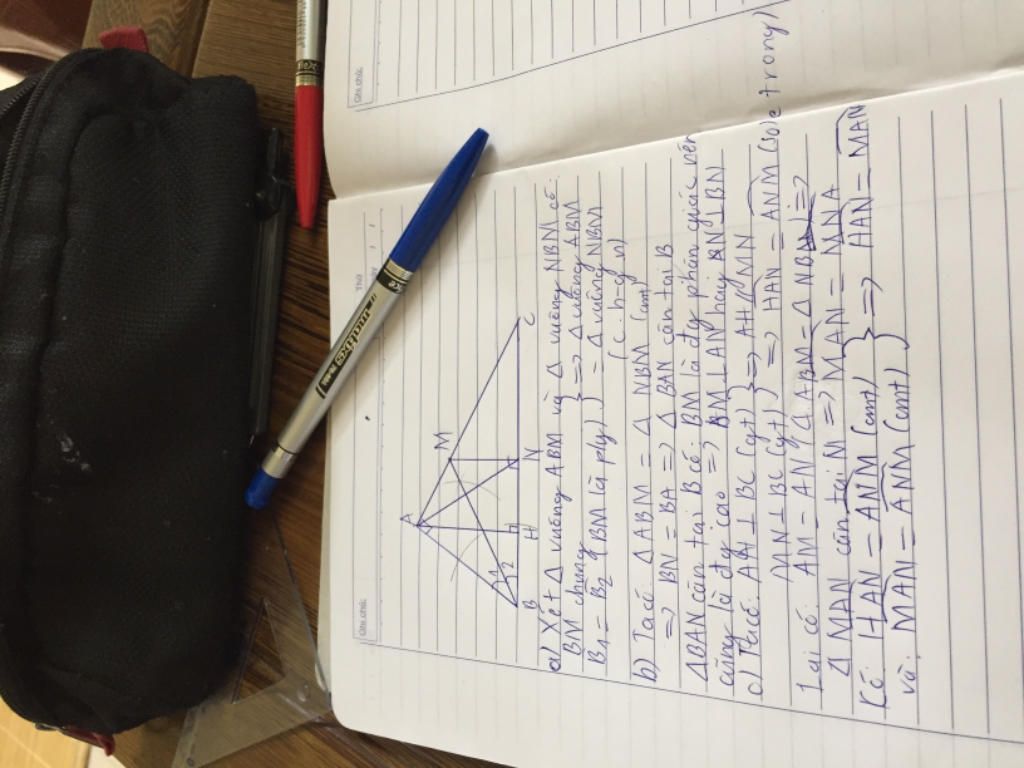 Ghi chú:
Thứ
Ngày
Ghi chú:
A
M
B
2
H
N
C
a) Xét Δ vuông ABM và Δ vuông NBM có:
BM chung } => Δ vuông ABM
B1 = B2 (BM là p/g) } = Δ vuông NBM
(c.h-g.n)
b) Ta có: Δ ABM = Δ NBM (cmt)
=> BN = BA => Δ BAN cân tại B
ΔBAN cân tại B có: BM là đg phân giác nên
cũng là đg cao => BM ⊥ AN hay AN ⊥ BN
c) Ta có: AH ⊥ BC (gt) } => AH // MN
MN ⊥ BC (gt) } => HAN = ANM (so le trong)
Lại có: AM = AN (Δ ABM = Δ NBM) =>
Δ MAN cân tại M => MAN = MNA
Có HAN = ANM (cmt) } => HAN = MAN
và: MAN = ANM (cmt)